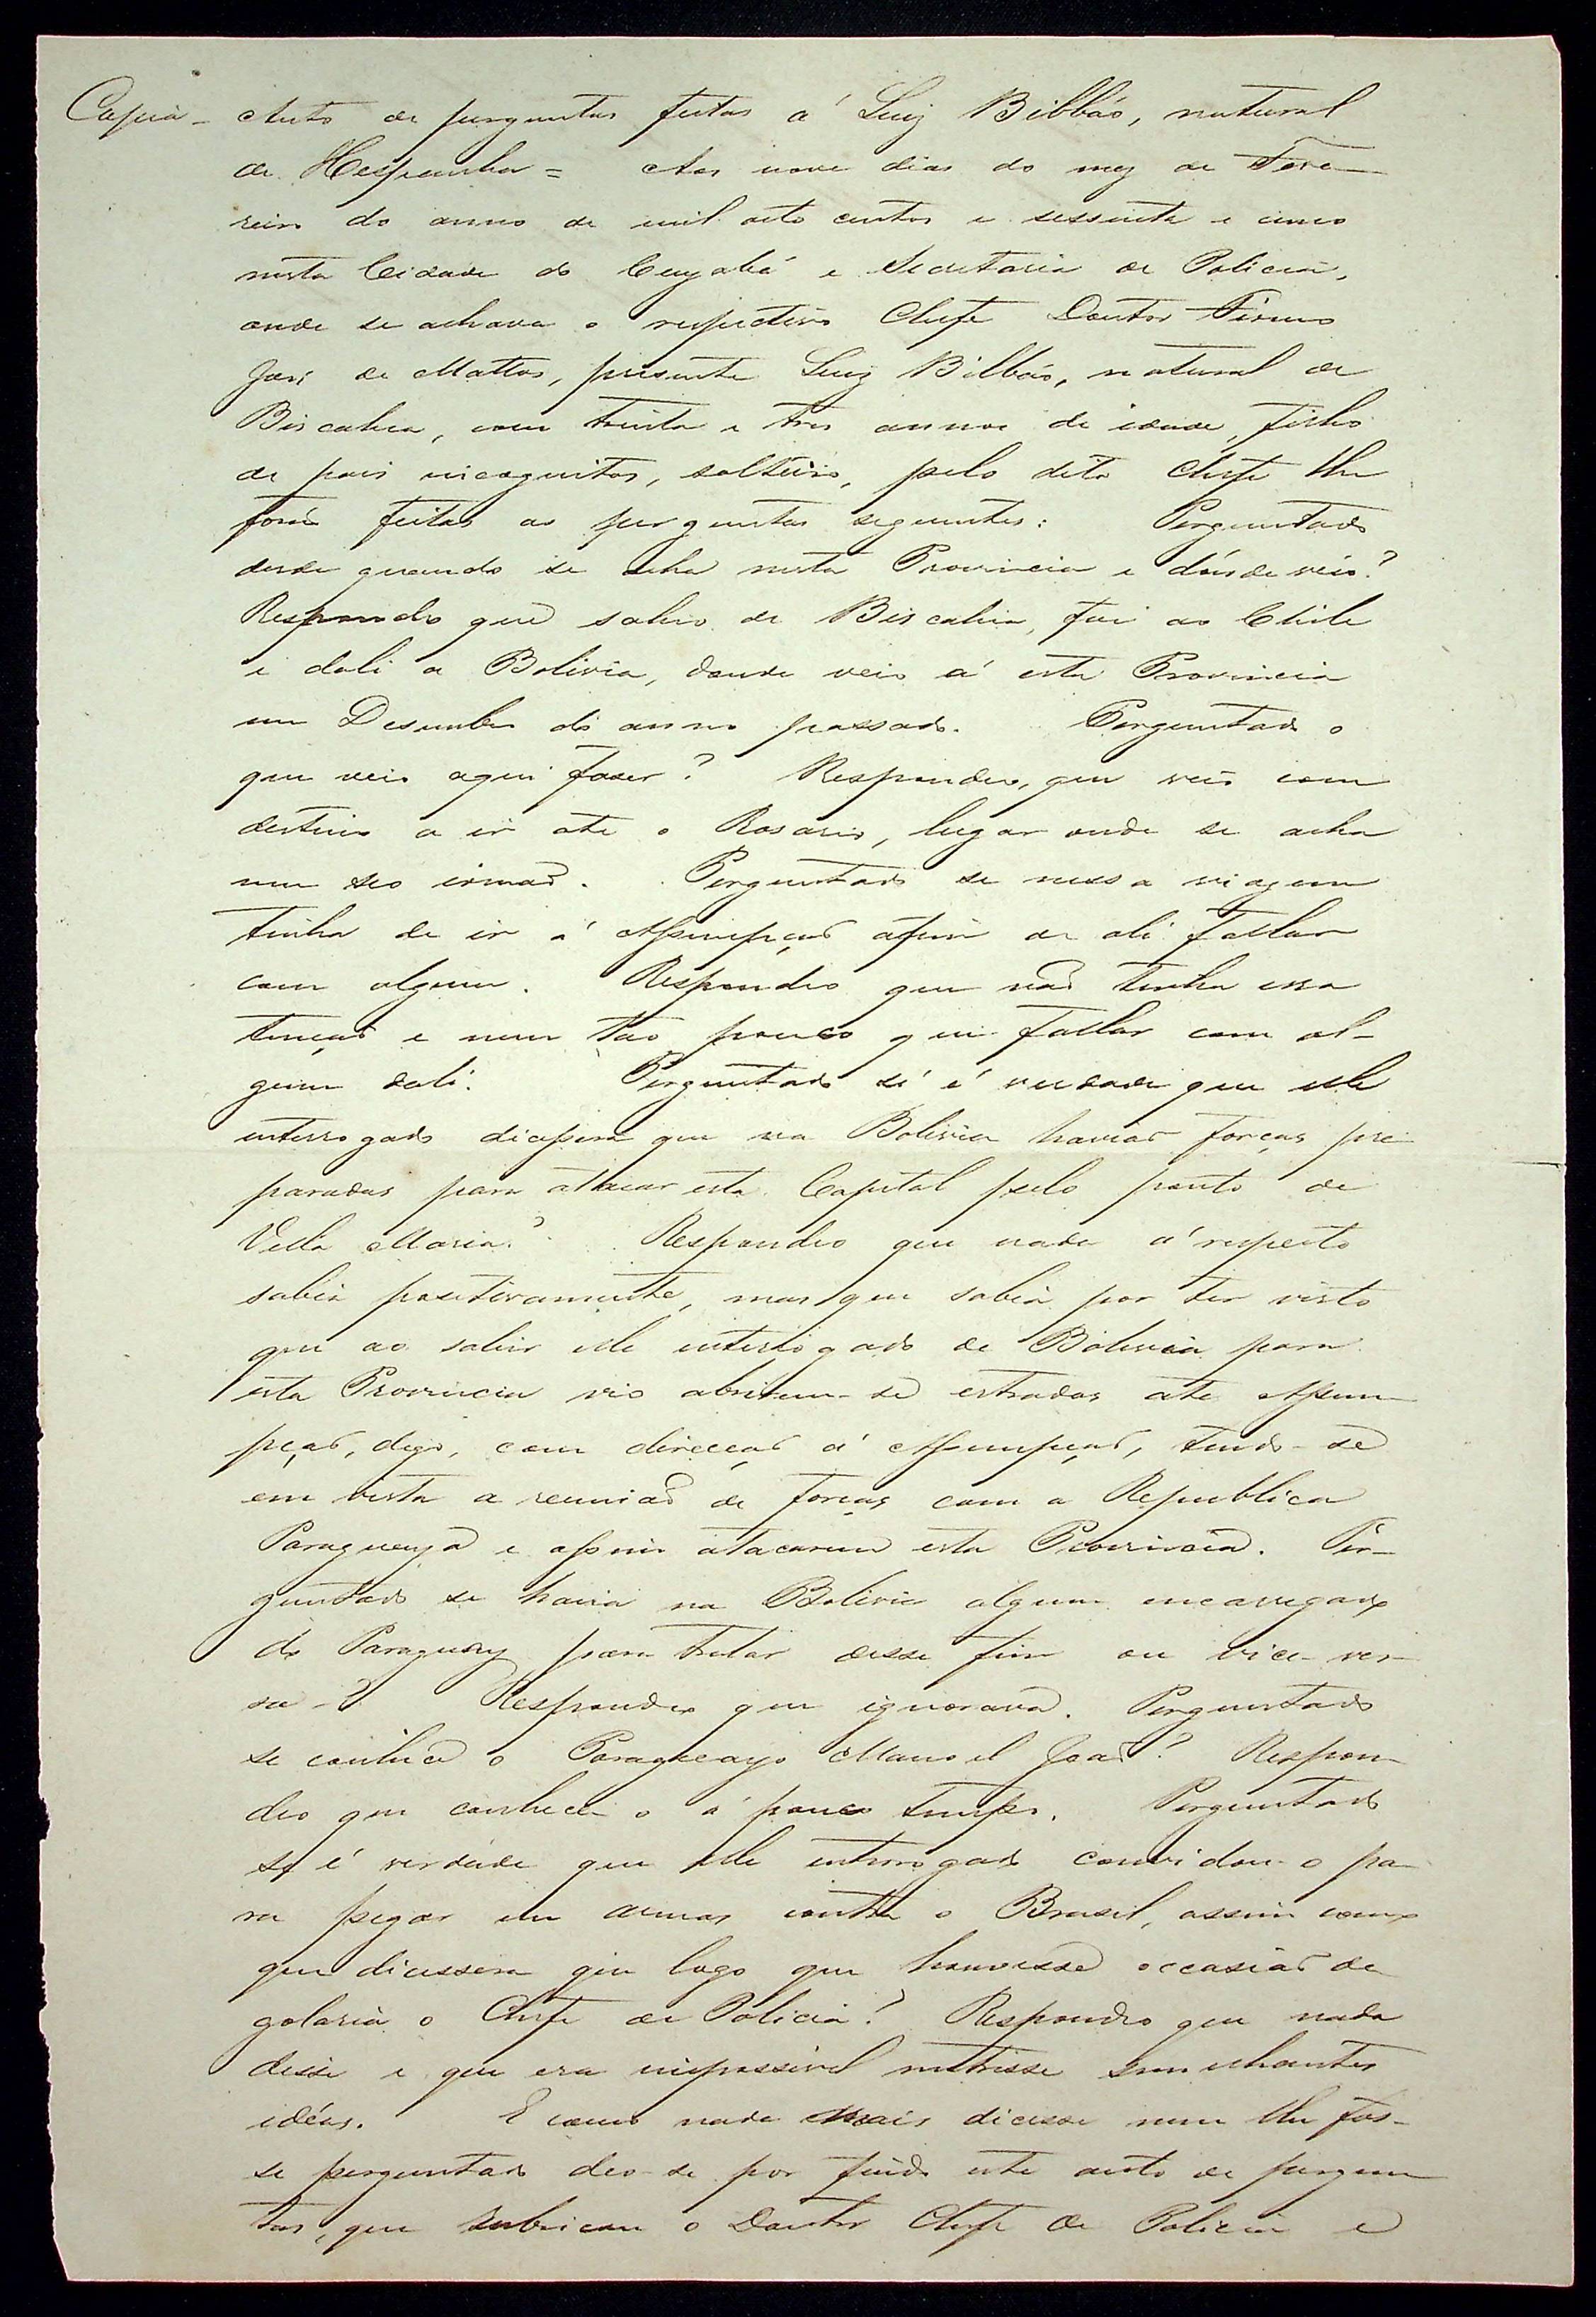 Copia - Auto de perguntas feitas á Luiz Bilbáo, natural
de Hespanha = Aos nove dias do mez de Feve-
reiro do anno de mil oito centos e sessenta e cinco
nesta Cidade do Cuyabá e Secretaria de Policia,
onde se achava o respectivo Chefe Doutor Firmo
José de Mattos, presente Luiz Bilbáo, natural de
Biscahia, com trinta e tres annos de idade, filho
de pais incognitos, solteiro, pelo dito Chefe lhe
forão feitas as perguntas seguintes: Perguntado
desde quando se acha nesta Provincia e dónde veio?
Respondeo que sahio de Biscahia, foi ao Chile
e dali a Bolivia, donde veio á esta Provincia
em Desembro do anno passado. Perguntado o
que veio aqui faser? Respondeo, que veio com
destino a ir ate o Rosario, lugar onde se acha
um seo irmaõ. Perguntado se nessa viagem
tinha de ir á Assumpçaõ afim de ali fallar
com alguem. Respondeo que naõ tinha essa
tençaõ e nem tão pouco que fallar com al-
guem dali. Perguntado sé é verdade que elle
interrogado dicera que na Bolivia haviaõ forças pre
paradas para attacar esta Capital pelo ponto de
Villa Maria? Respondeo que nada á respeito
sabia positivamente, mas que sabia por ter visto
que ao sahir elle interrogado de Bolivia para
esta Provincia vio abrirem-se estradas até Assum
pçaõ, digo, com direcçaõ á Assumpçaõ, tendo-se
em vista a reuniaõ de forças com a Republica
Paraguaya e assim atacarem esta Provincia. Per-
guntado se havia na Bolivia algum encarregado
do Paraguay para tratar desse fim ou vice-ver-
sa-? Respondeo que ignorava. Perguntado
se conhece o Paraguayo Manoel Joaõ? Respon-
deo que conhece-o á pouco tempo. Perguntado
se é verdade que elle interrogado convidou-o pa-
ra pegar em armas contra o Brasil, assim como
que dicessera que logo que houvesse occasiaõ de
golaria o Chefe de Policia? Respondeo que nada
disse e que era impossivel nutrisse semelhantes
idéas. E como nada mais dicesse nem lhe fos-
se perguntado deo-se por findo este auto de pergun
tas, que rubricou o Doutor Chefe de Policia e